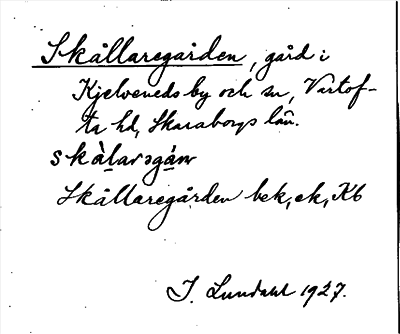 Skållaregården, gård i
Kjelveneds by och sn, Vartof-
ta hd, Skaraborgs län.
skå̀larəgán
Skållaregården bek, ek, Kb
J. Lundahl 1927.